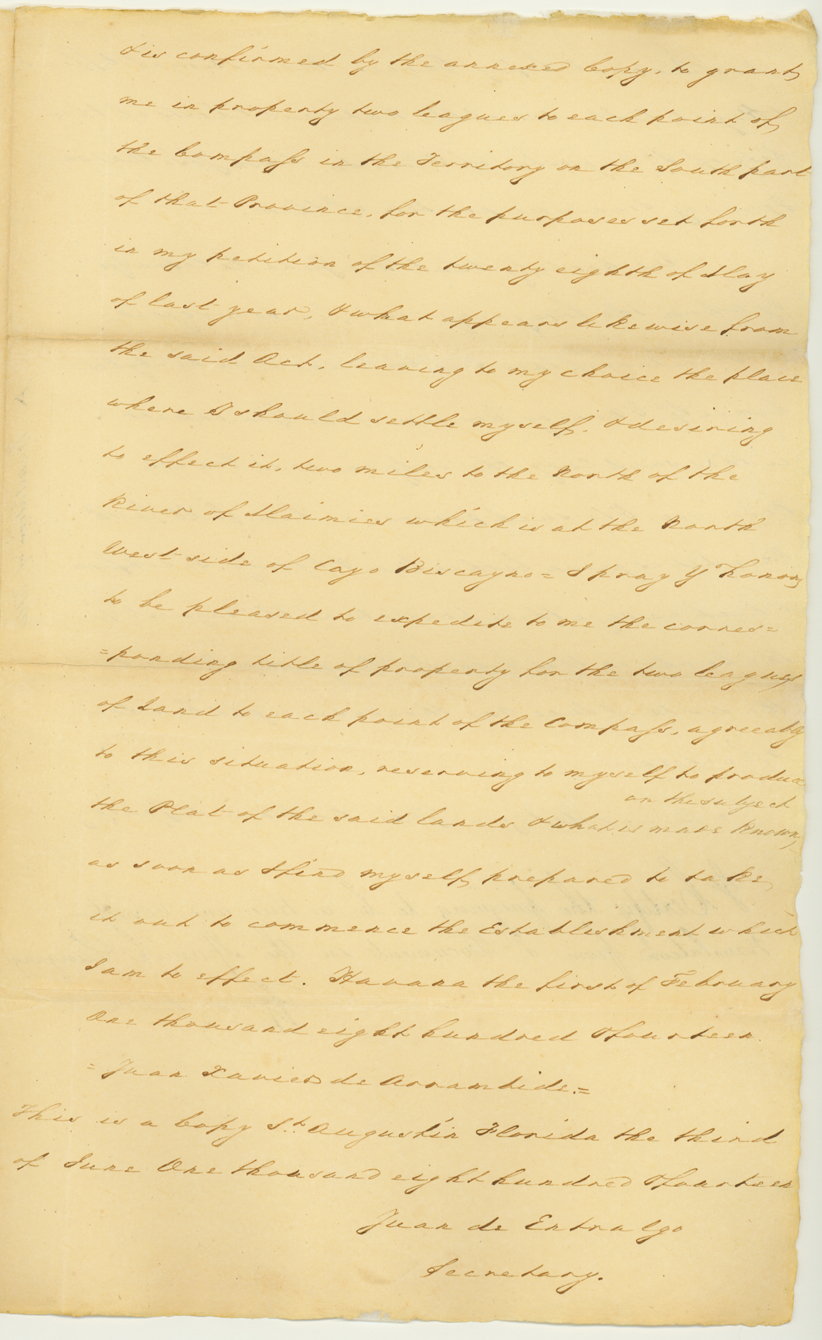 & is confirmed by the annexed Copy, to grant
me in property two leagues to each point of
the Compass in the Territory on the South part
of that Province, for the purposes set forth
in my petition of the twenty eighth of May
of last year, & what appears likewise from
the said Act, leaving to my choice the place
where I should settle myself, & desiring
to effect it, two miles to the North of the
River of Maimies which is at the North
West side of Cayo Biscayno = I pray Yr honor
to be pleased to expedite to me the corres=
=ponding title of property for the two leagues
of Land to each point of the Compass, agreeably
to this situation, reserving to myself to produce
on the subject
the Plat of the said lands & what is made Known,
as soon as I find myself prepared to take
it out to commence the Establishment which
I am to effect. Havana the first of February
One thousand eight hundred & fourteen.
= Juan Xavier de Arrambide. =
This is a Copy St. Augustin Florida the third
of June One thousand eight hundred & fourteen
Juan de Entralgo
Secretary.